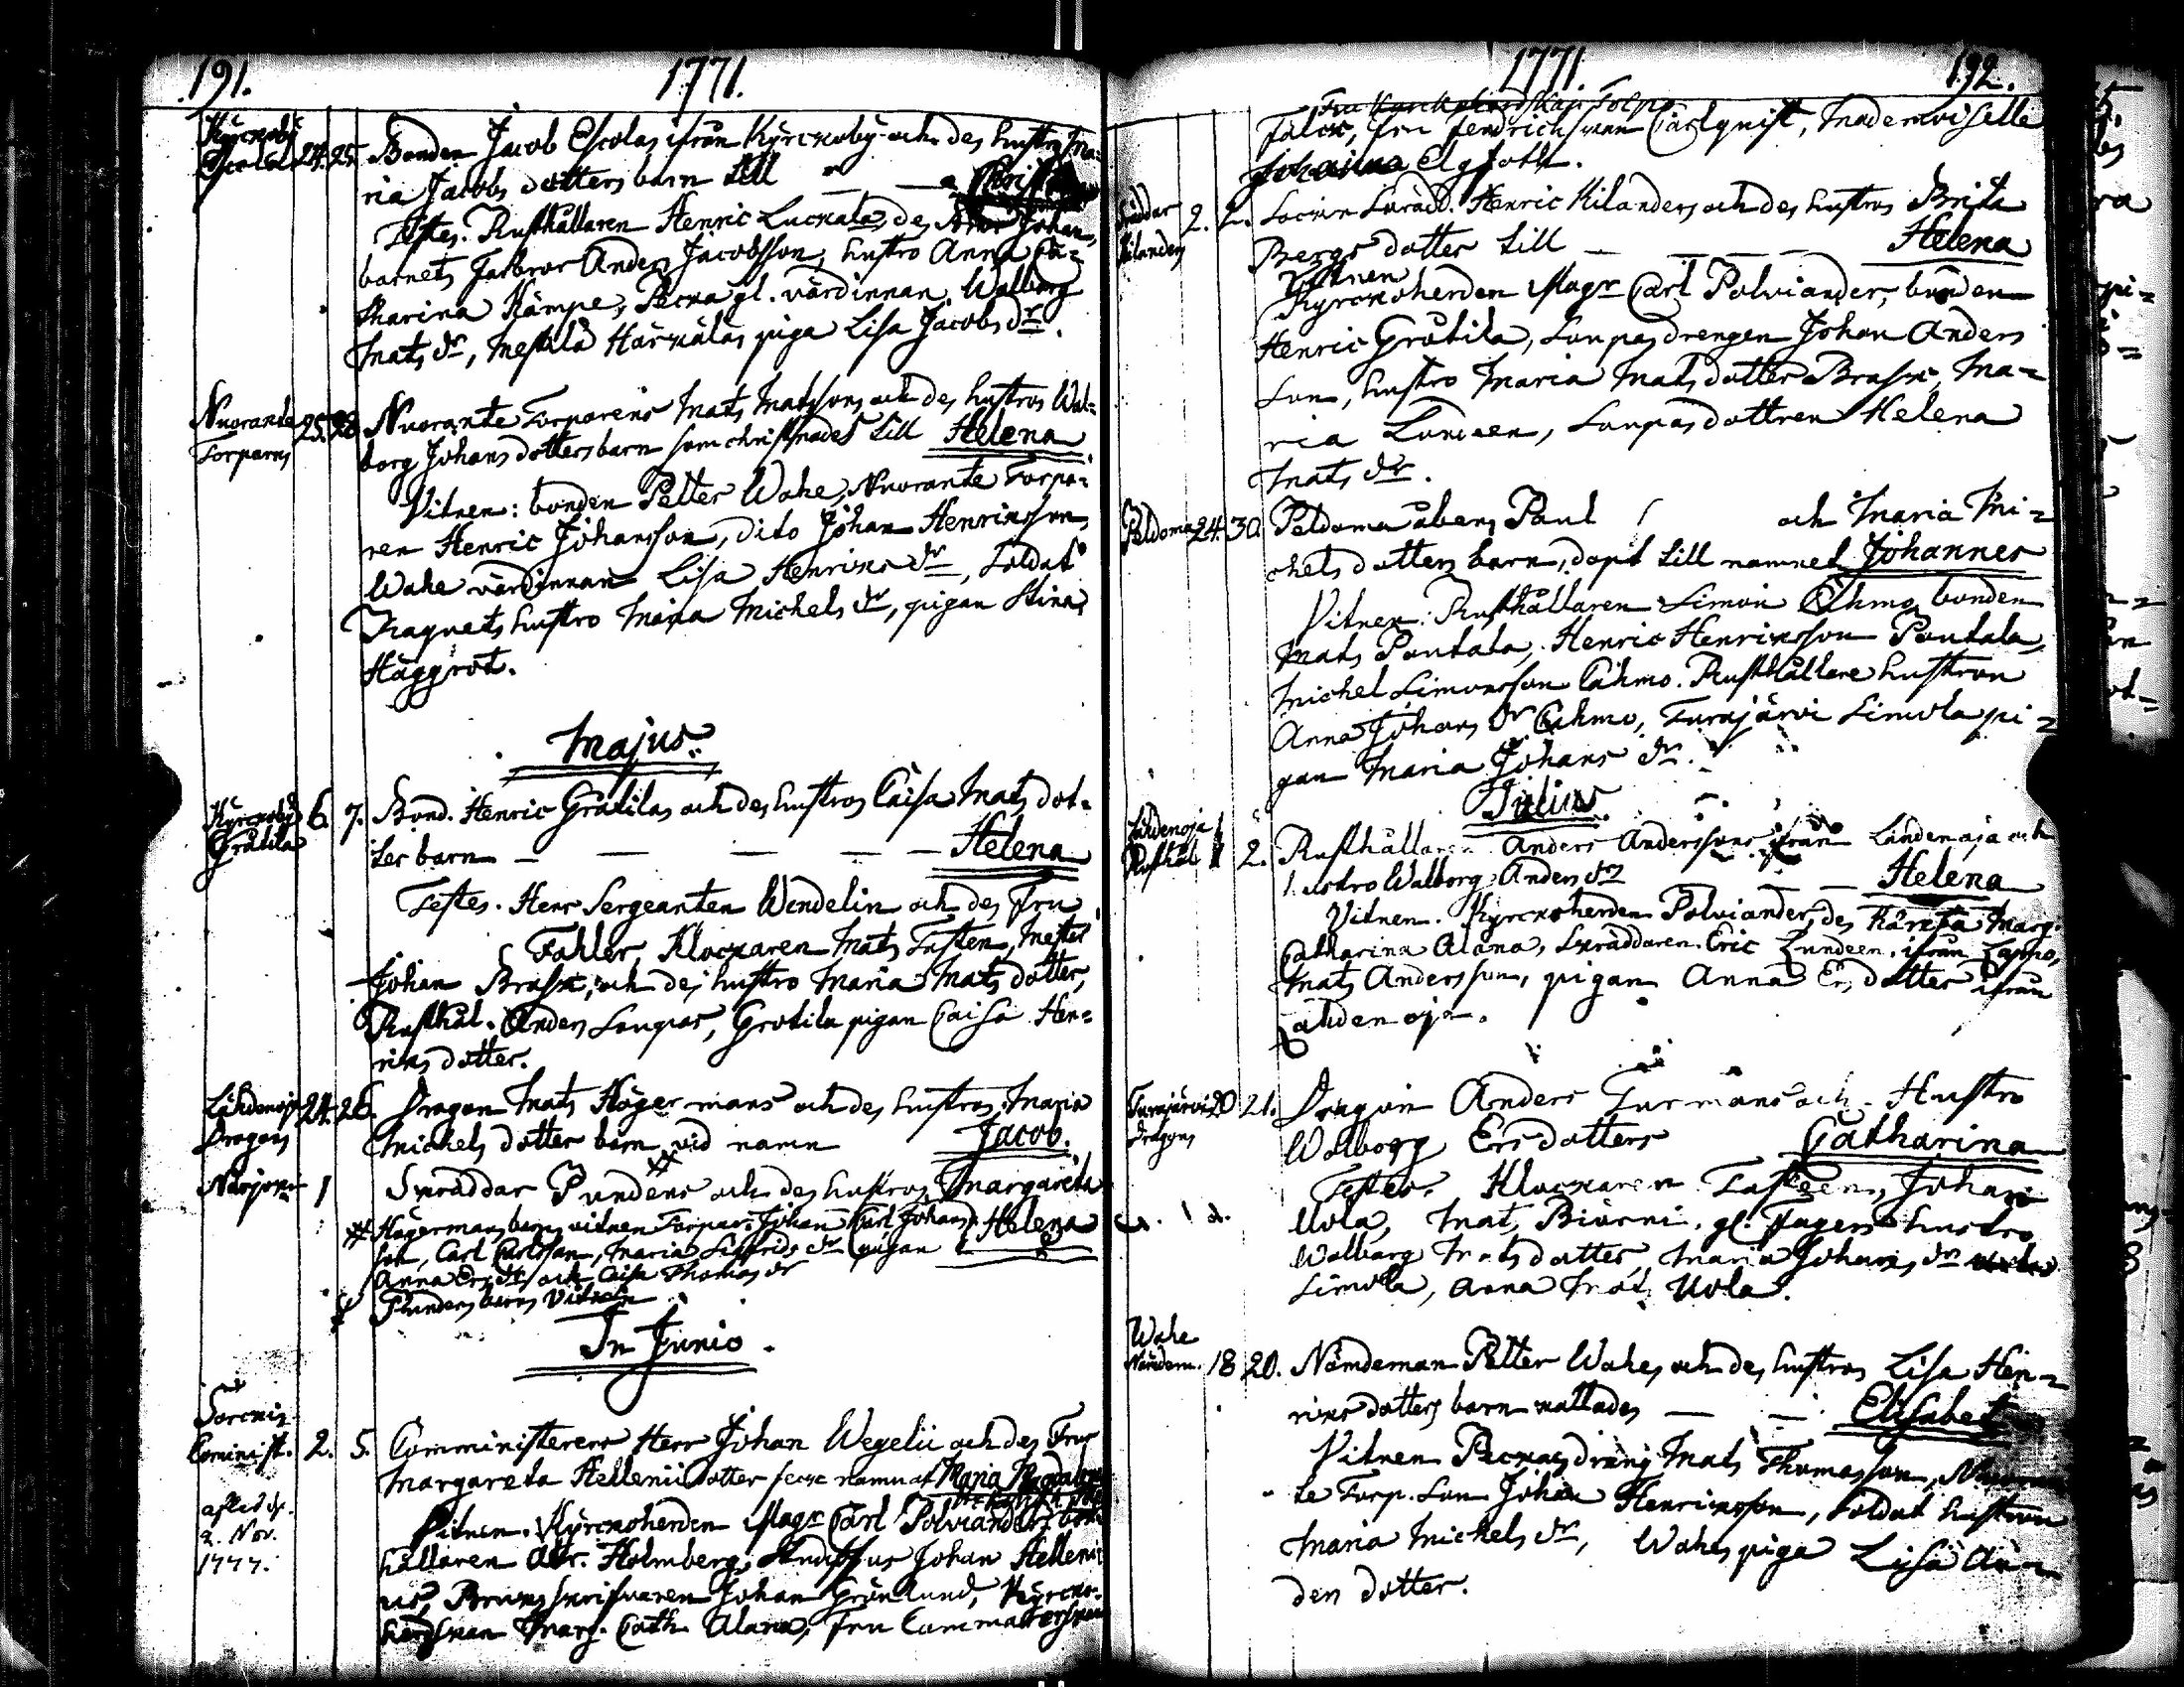 191. 1771.
Kyrckoby
Escolas 24. 25. Bonden Jacob Escolas ifrån Kyrckoby och des hustru Ma=
ria Jacobs dotters barn till
Testes. Rusthållaren Henric Luckala, des Johan,
barnets Farbror Anders Jacobsson, hustro Anna Ca=
tharina Kämpe, Pecka gl. värdinnan Walborg
Mats dr, Mestilä Härkälas piga Lisa Jacobs dr.
Nuorante
Torpares 25. 28. Nuorante Torparens Mats Matssons och des hustros Wal=
borg Johans dotters barn som christnades till Helena
Vitnen: bonden Petter Wahe, Nuorante Torpa=
ren Henric Johansson, dito Johan Henricsson,
Wahe värdinnan Lisa Henrics dr, Soldat
hustro Maria Michels dr, pigan Stina
Häggrot.
Majus.
Kyrckoby
Gråtila 6. 7. Bond. Henric Gråtilas och des hustros Caisa Mats dot=
ters barn — — — — Helena
Testes. Herr Sergeanten Wendelin och des Fru
Fahler, Klockaren Mats Tasten, Mester
Johan Brask, och des hustro Maria Mats dotter,
Rusthål. Anders Loupas, Grotila pigan Caisa Hen=
rics dotter.
Lähdenoja
Dragons 24. 26. Dragon Mats Högermans och des hustros Maria
Michels dotter barn vid namn Jacob.
1 Skräddar Pundens och des hustros Margareta
# Hagermans barns vitnen Torpar. Johan Carl Johans
son, Carl Carlsson, Maria Sigfrids dr pigan Helena
Anna Ers dr och Caisa Thomas dr
Pundens barns Vitnen
In Junio.
Cominist. 2. 5. Comministerens Herr Johan Wegelii och des Frus
Margareta Hellenii dotter feck namn af Maria Magdalena
Vitnen. Kyrckoherden Magr Carl Polviander,
hållaren Abr. Holmberg, Johan Helleni
us, Bruks skrifvaren Johan Grönlund, Kyrcko=
herdskan Marg. Cath. Alana, Fru
afled d.
2. Nov.
1777.
1771. 192.
Falck, Fru Fendrichskan Carlqvist, Mademoiselle
Johanna Elgfoth.
Skräddar
Kilanders 2. 2. Socken Skrädd. Henric Kilanders och des hustros Brita
Bergs dotter till — — — Helena
Vitnen
Kyrckoherden Magr Carl Polviander, bonden
Henric Gråtila, Loupas drengen Johan Anders
Son, hustro Maria Mats dotter Brask, Ma=
ria Lundeen, Loupas dottren Helena
Mats dr.
Peldoma 24. 30. Peldoma åbons Paul och Maria Mi=
chels dotters barn, döpt till namnet Johannes
Vitnen: Rusthållaren Simon Cähmo, bonden
Mats Pantala, Henric Henricsson Pantala,
Michel Simonsson Cähmo. Rusthållare hustron
Anna Johans dr Cähmo, Turajärvi Simola pi=
gan Maria Johans dr.
Julius.
Lähdenoja
Rusthål 1 2. Rusthållaren Anders Anderssons ifrån Lähdenoja och
hustro Walborg Anders dr — Helena
Vitnen. Kyrckoherden Polviander, des Käresta Marg.
Catharina Alana, Skräddaren Eric Lundeen, ifrån Lappo,
Mats Andersson, pigan Anna Ers dotter ifrån
Lähdenoja.
Turajärvi
Dragons 20 21. Dragon Anders Turmans och Hustro
Walborg Ers dotters Catharina
Testes. Klockaren Tasteen, Johan
Uola, Mats Biörni, gl. Jagers hustro
Walborg Mats dotter, Maria Johans dr
Simola, Anna Mats Uola.
Wahe
Nämdem. 18 20. Nämdeman Petter Wahes och des hustros Lisa Hen=
rics dotters barn kallades — — Elisabet
Vitnen Peckas dräng Mats Thomasson,
te Torp. Son Johan Henricsson, Soldat hustrun
Maria Michels dr, Wahes piga Lisa An=
ders dotter.